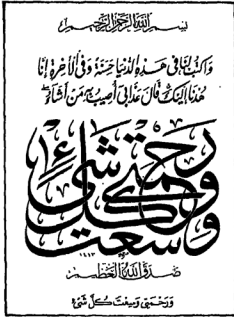 بسم الله الرحمن الرحيم
وَاكْتُبْ لَنَا فِي هَذِهِ الدُّنْيَا حَسَنَةً وَفِي الْآخِرَةِ إِنَّا
هُدْنَا إِلَيْكَ قَالَ عَذَابِي أُصِيبُ بِهِ مَنْ أَشَاءُ
ورحمتي وسعت كل شيء
١٤١٣
صدق الله العظيم
وَرَحْمَتِي وَسِعَتْ كُلَّ شَيْءٍ